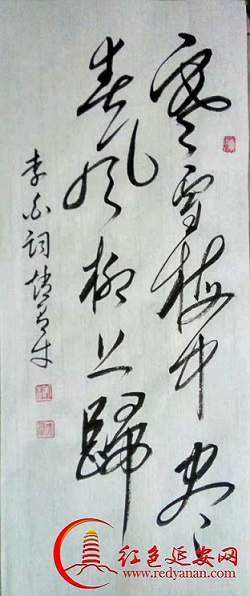 寒雪梅中尽
春风柳上归
李白词
红色延安网
www.redyanan.com